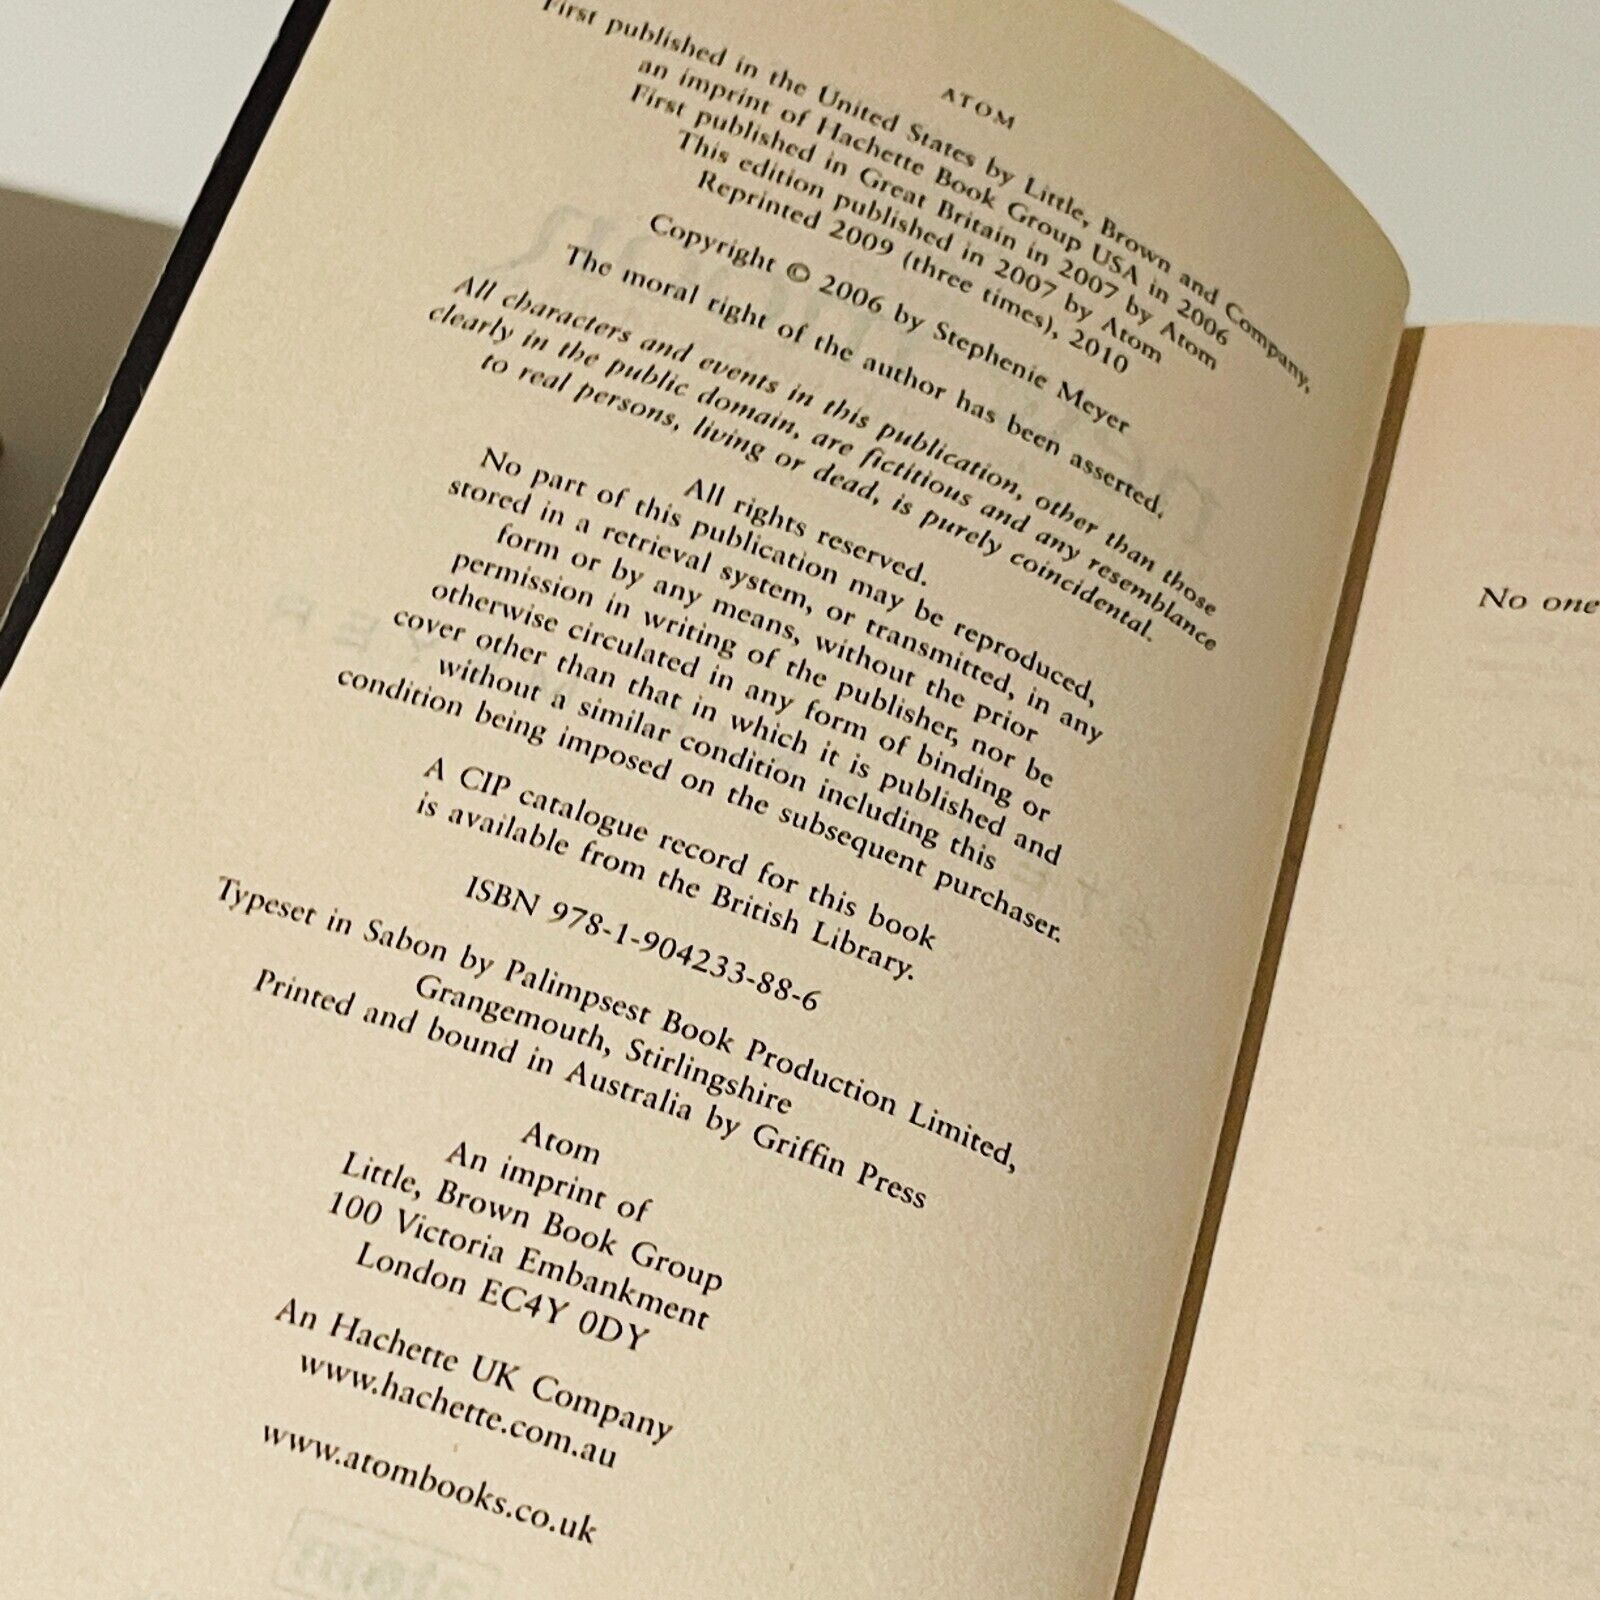 ATOM
First published in the United States by Little, Brown and Company,
an imprint of Hachette Book Group USA in 2006
First published in Great Britain in 2007 by Atom
This edition published in 2007 by Atom
Reprinted 2009 (three times), 2010
Copyright © 2006 by Stephenie Meyer
The moral right of the author has been asserted.
All characters and events in this publication, other than those
clearly in the public domain, are fictitious and any resemblance
to real persons, living or dead, is purely coincidental.
All rights reserved.
No part of this publication may be reproduced,
stored in a retrieval system, or transmitted, in any
form or by any means, without the prior
permission in writing of the publisher, nor be
otherwise circulated in any form of binding or
cover other than that in which it is published and
without a similar condition including this
condition being imposed on the subsequent purchaser.
A CIP catalogue record for this book
is available from the British Library.
ISBN 978-1-904233-88-6
Typeset in Sabon by Palimpsest Book Production Limited,
Grangemouth, Stirlingshire
Printed and bound in Australia by Griffin Press
Atom
An imprint of
Little, Brown Book Group
100 Victoria Embankment
London EC4Y 0DY
An Hachette UK Company
www.hachette.com.au
www.atombooks.co.uk
No one